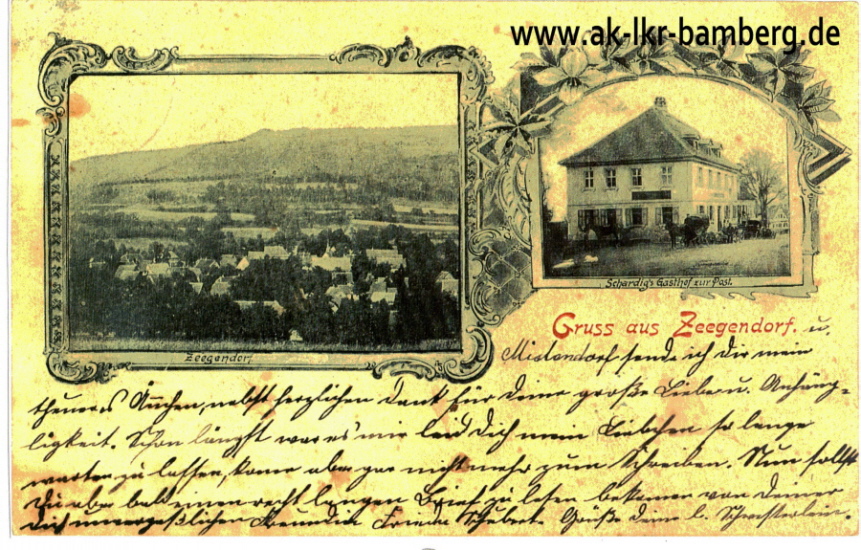 www.ak-lkr-bamberg.de
Schardig's Gasthof zur Post.
Zeegendorf
Gruss aus Zeegendorf. u.
Mistendorf sende ich Dir mein
theueres Ännchen, nebst herzlichen Dank für Deine große Liebe u. Anhäng-
ligkeit. Schon längst war es mir leid Dich mein Liebchen so lange
warten zu lassen, kome aber gar nicht mehr zum Schreiben. Nun sollst
Du aber bald einen recht langen Brief zu lesen bekomen von Deiner
Dich unvergeßlichen Freundin Frieda Schubert. Grüße Deine l. Schwesterlein.